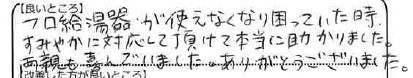 【良いところ】
フロ給湯器が使えなくなり困っていた時、
すみやかに対応して頂けて本当に助かりました。
両親も喜んでいました。ありがとうございました。
【改善した方が良いところ】